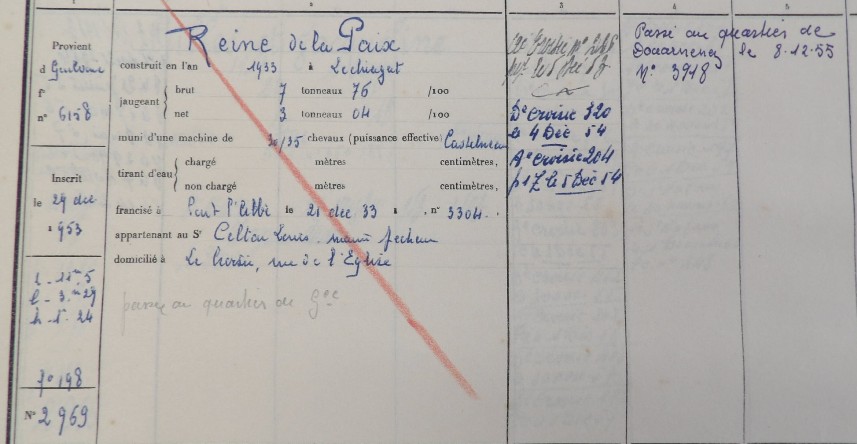 1
2
3
4
5
Provient
d
f°
n° 6158
Inscrit
le 29 dec
1953
l - 11m,5
l - 3m29
h - 1 - 24
f° 198
N° 2969
Reine de la Paix
construit en l'an 1933 à Lechiagat
jaugeant
brut 7 tonneaux 76 /100
net 3 tonneaux 04 /100
muni d'une machine de 30/35 chevaux (puissance effective) Castelneau
tirant d'eau
chargé mètres centimètres,
non chargé mètres centimètres,
francisé à Pont l'Abbé le 21 dec 33 , n° 3304
appartenant au Sr Celton Louis - marin pecheur
domicilié à Le Croisic, rue de l'Eglise
passé au quartier de
Dt Croisic 320
le 4 Déc 54
At Croisic 204
le 5 Déc 54
Passé au quartier de
Douarnenez le 8.12.55
N° 3918